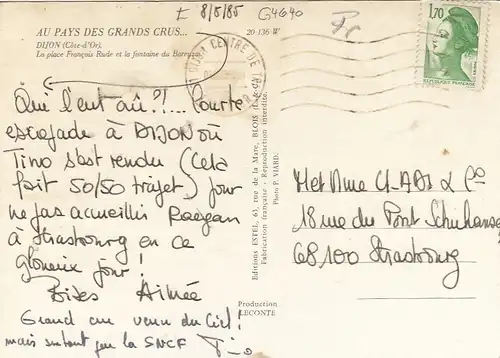 E 8/5/85 G4640
AU PAYS DES GRANDS CRUS...
20-136-W
DIJON (Côte-d'Or).
La place François Rude et la fontaine du Bareuzai
CENTRE DE
1,70
REPUBLIQUE FRANCAISE
Qui l'eut cru ?!... Courte
escapade à DIJON où
Tino s'est rendu (cela
fait 50/50 trajet) pour
ne pas accueillir Reagan
à Strasbourg en ce
glorieux jour !
Bises Aimée
Grand cru venu du Ciel !
mais surtout par la SNCF Tino
Editions ESTEL, 61, rue de la Mare, BLOIS
Fabrication française - Reproduction interdite.
Photo P. VIARD.
Production
LECONTE
M et Mme & Co
18 rue du Pont
68100 Strasbourg